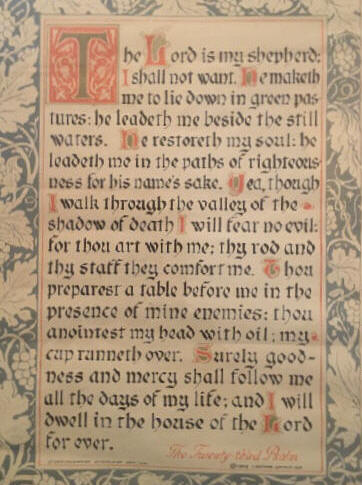 The Lord is my shepherd;
I shall not want. He maketh
me to lie down in green pas
tures: he leadeth me beside the still
waters. He restoreth my soul: he
leadeth me in the paths of righteous
ness for his name's sake. Yea, though
I walk through the valley of the
shadow of death I will fear no evil:
for thou art with me; thy rod and
thy staff they comfort me. Thou
preparest a table before me in the
presence of mine enemies: thou
anointest my head with oil; my
cup runneth over. Surely good-
ness and mercy shall follow me
all the days of my life; and I will
dwell in the house of the Lord
for ever.
The Twenty-third Psalm